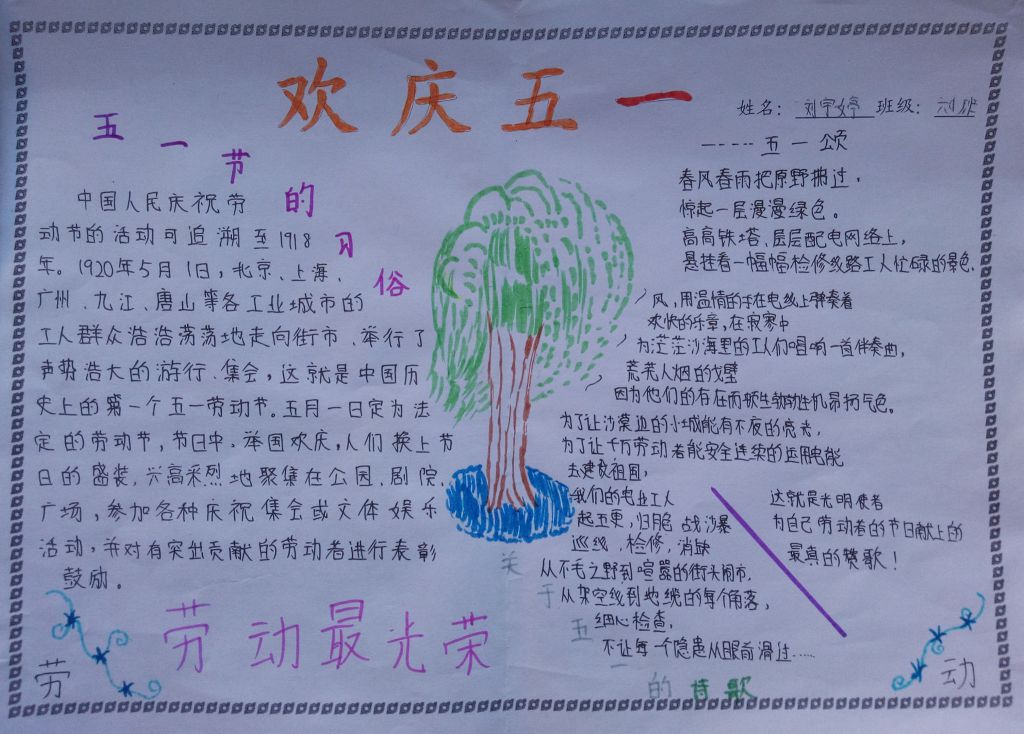 欢庆五一
姓名：刘宇婷 班级：
五一节的习俗
中国人民庆祝劳
动节的活动可追溯至1918
年。1920年5月1日，北京、上海、
广州、九江、唐山等各工业城市的
工人群众浩浩荡荡地走向街市、举行了
声势浩大的游行、集会，这就是中国历
史上的第一个五一劳动节。五月一日定为法
定的劳动节，节日中，举国欢庆，人们换上节
日的盛装，兴高采烈地聚集在公园、剧院、
广场，参加各种庆祝集会或文体娱乐
活动，并对有突出贡献的劳动者进行表彰
鼓励。
劳动最光荣
劳
----五一颂
春风春雨把原野拂过，
惊起一层漫漫绿色。
高高铁塔、层层配电网络上，
悬挂着一幅幅检修线路工人忙碌的景色.
风，用温情的手在电线上弹奏着
欢快的乐章，在寂寥中
为茫茫沙海里的工人们唱响一首伴奏曲，
荒芜人烟的戈壁
因为他们的存在而被生物勃性机昂扬气色。
为了让沙漠边的小城能有不夜的亮光，
为了让千万劳动者能安全连续的运用电能
去建设祖国，
我们的电业工人
起五更，归脂 战沙暴
巡线，检修，消缺
从不毛之野到喧嚣的街头闹市，
从架空线到地缆的每个角落，
细心检查，
不让每一个隐患从眼前滑过……
这就是光明使者
为自己劳动者的节日献上的
最真的赞歌！
关于五一的诗歌
动